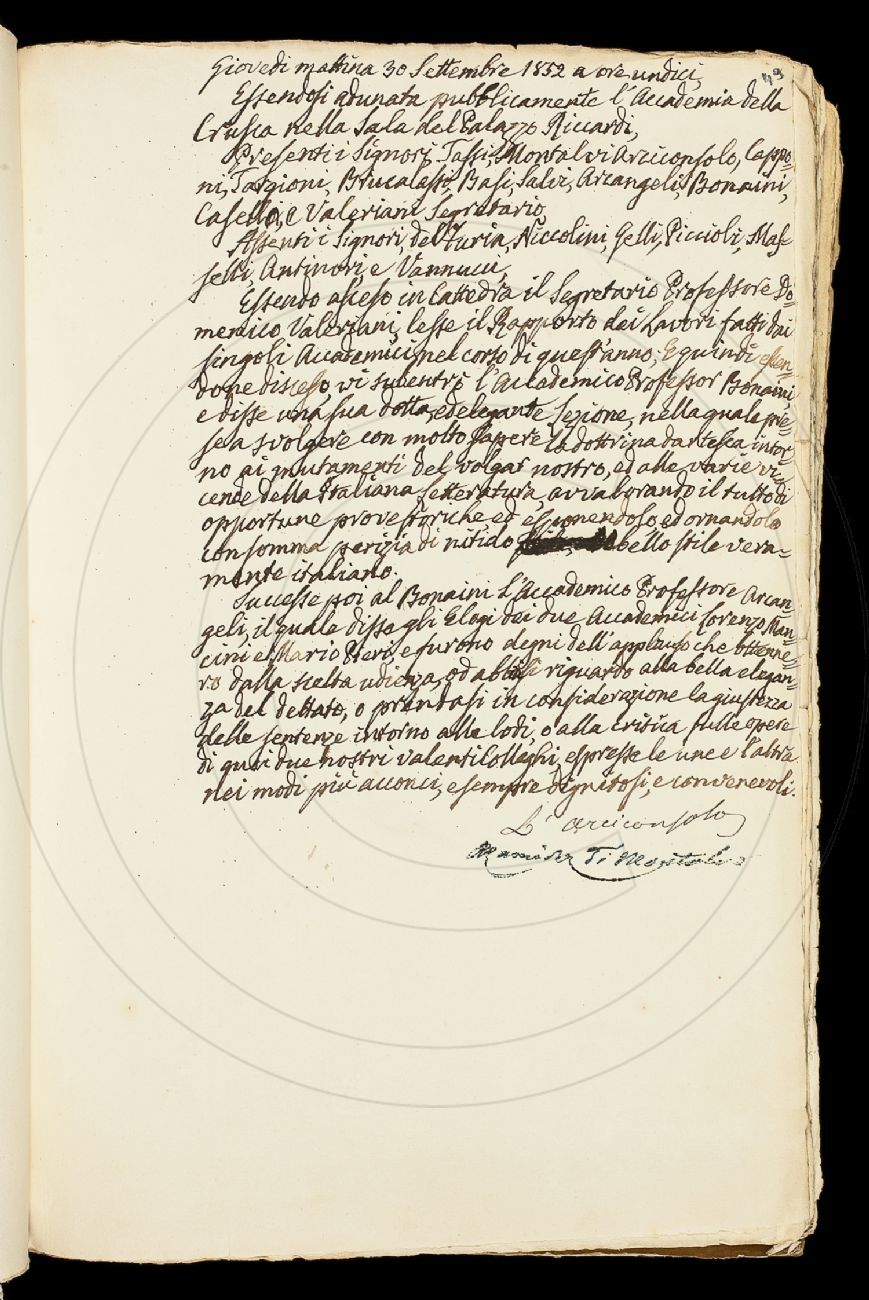 49
Giovedì mattina 30 Settembre 1852 a ore undici,
Essendosi adunata pubblicamente l'Accademia della
Crusca nella Sala del Palazzo Riccardi,
Presenti i Signori, Tassi, Montalvi Arciconsolo, Cappo=
ni, Targioni, Brucalassi, Basi, Salvi, Arcangeli, Bonaini,
Caselli, e Valeriani Segretario,
Assenti i Signori, del Furia, Niccolini, Gelli, Piccioli, Mas=
selli, Antinori e Vannucci,
Essendo asceso in Cattedra il Segretario Professore Do=
menico Valeriani, lesse il Rapporto dei Lavori fatti dai
singoli Accademici nel corso di quest'anno; E quindi essen=
done disceso, vi subentrò l'Accademico Professor Bonaini,
e disse una sua dotta, ed elegante Lezione, nella quale pre=
se a svolgere con molto sapere la dottrina dantesca intor=
no ai mutamenti del volgar nostro, ed alle varie vi=
cende della Italiana Letteratura, avvalorando il tutto di
opportune prove storiche ed esponendolo, ed ornandolo
con somma perizia di nitido bello stile vera=
mente italiano.
Successe poi al Bonaini L'Accademico Professore Arcan=
geli, il quale disse gli Elogi dei due Accademici Lorenzo Man=
cini e Mario Pieri, e furono degni dell'applauso che ottenne=
ro dalla scelta udienza, od abbiasi riguardo alla bella elegan=
za del dettato, o prendasi in considerazione la giustezza
delle sentenze intorno alle lodi, o alla critica sulle opere
di quei due nostri valenti Colleghi, espresse le une e l'altra
nei modi più acconci, e sempre dignitosi, e convenevoli.
L'Arciconsolo
Ramirez Di Montalvo